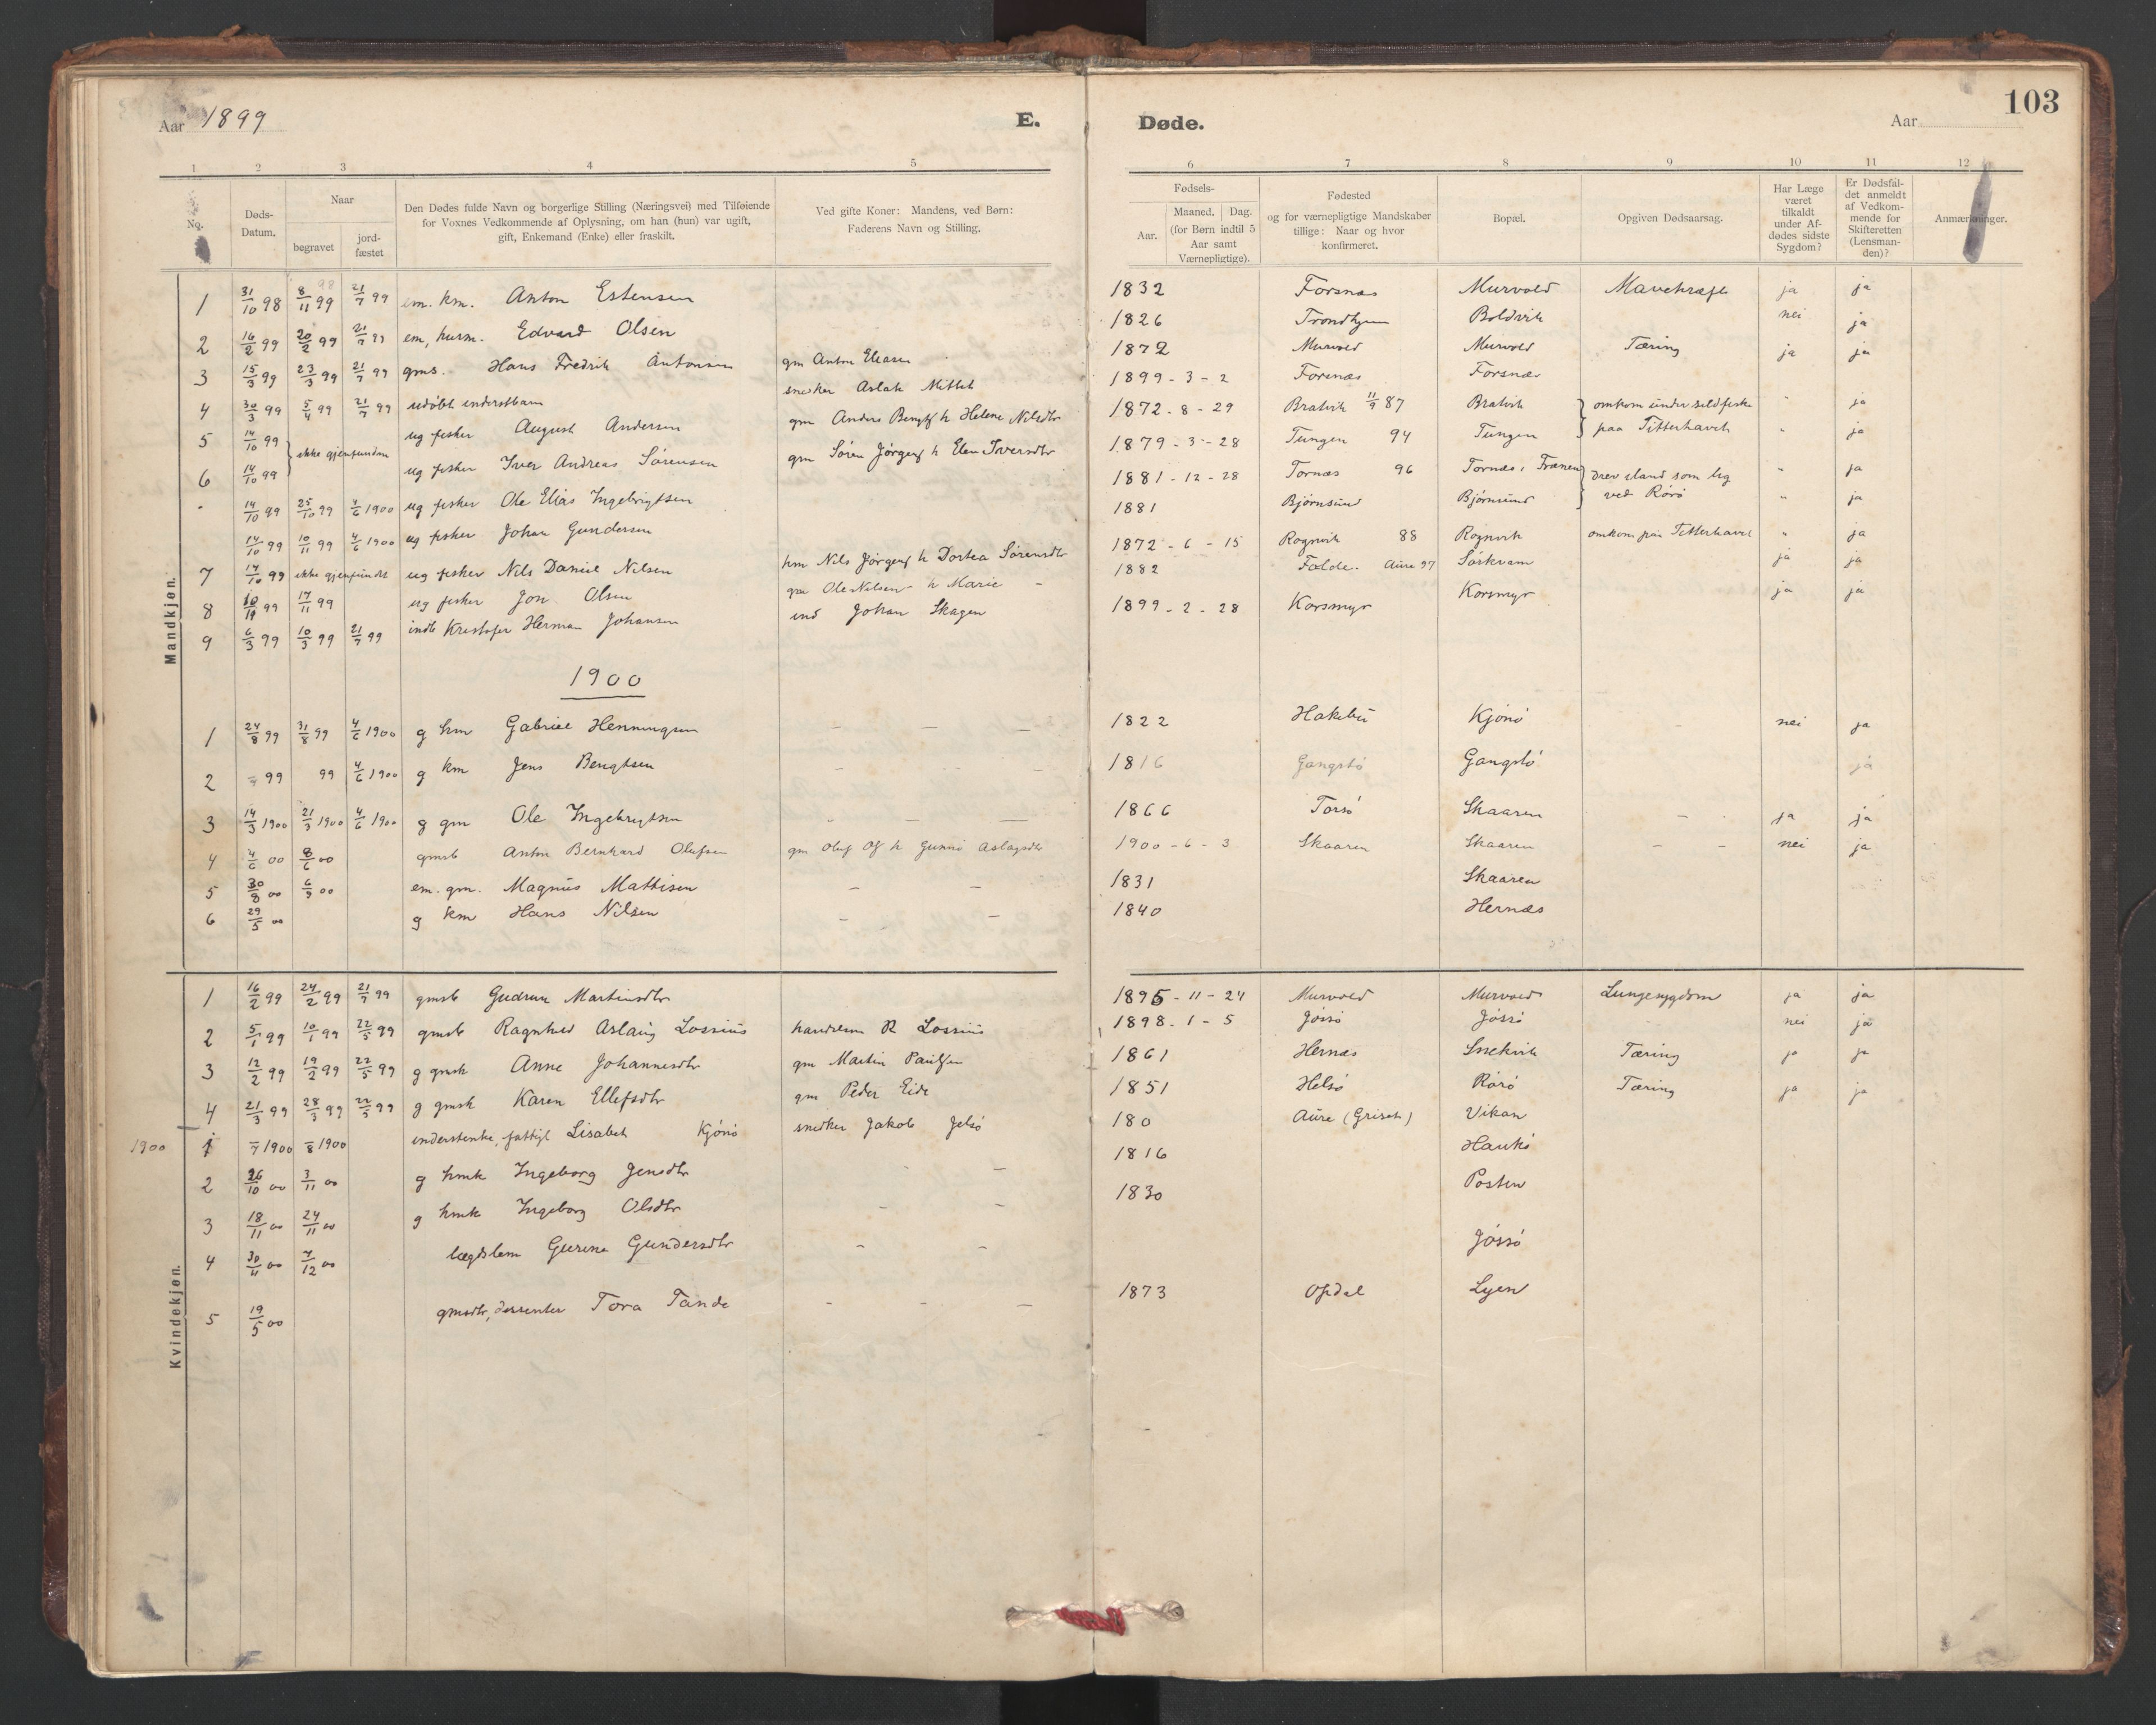 103
Aar 1899 E. Døde. Aar
1 2 3 4 5 6 7 8 9 10 11 12
No.
Døds-Datum.
Naar
begravet
jord-fæstet
Den Dødes fulde Navn og borgerlige Stilling (Næringsvei) med Tilføiende for Voxnes Vedkommende af Oplysning, om han (hun) var ugift, gift, Enkemand (Enke) eller fraskilt.
Ved gifte Koner: Mandens, ved Børn: Faderens Navn og Stilling.
Fødsels-
Aar.
Maaned. Dag. (for Børn indtil 5 Aar samt Værnepligtige).
Fødested og for værnepligtige Mandskaber tillige: Naar og hvor konfirmeret.
Bopæl.
Opgiven Dødsaarsag.
Har Læge været tilkaldt under Afdødes sidste Sygdom?
Er Dødsfaldet anmeldt af Vedkommende for Skifteretten (Lensmanden)?
Anmærkninger.
Mandkjøn.
1 31/10 98 8/11 99 98 21/7 99 em. km. Anton Estensen 1832 Forsnæs Murvold ja ja
2 16/2 99 20/2 99 21/7 99 em, husm. Edvard Olsen 1826 Trondhjem Boldvik nei ja
3 15/3 99 23/3 99 21/7 99 gms. Hans Fredrik Antonsen gm Anton Eliasen 1872 Murvold Murvold Tæring ja ja
4 30/3 99 5/4 99 21/7 99 udøbt inderstbarn snedker Aslak Mittet 1899-3-2 Forsnæs Forsnæs
5 14/10 99 ikke gjenfunden ug fisker August Andersen gm Anders Bengts h Helene Nilsdtr 1872-8-29 Bratvik 11/9 87 Bratvik omkom under sildfiske " ja
6 14/10 99 ug fisker Iver Andreas Sørensen gm Søren Jørgens h Elen Iversdtr 1879-3-28 Tungen 94 Tungen paa Titterhavet " ja
" 14/10 99 25/10 99 4/6 1900 ug fisker Ole Elias Ingebrigtsen 1881-12-28 Tornæs 96 Tornæs i Frænen drev iland som lig " ja
14/10 99 10/11 99 4/6 1900 ug fisker Johan Gundersen 1881 Bjørnsund Bjørnsund ved Rørø " ja
7 14/10 99 ikke gjenfundet ug fisker Nils Daniel Nilsen hm Nils Jørgens h Dortea Sørensdtr 1872-6-15 Rognvik 88 Rognvik omkom paa Titterhavet " ja
8 99 17/11 99 ug fisker Jon Olsen gm Ole Nilsen h Marie - 1882 Folde. Aure 97 Sørkvam ja ja
9 6/3 99 10/3 99 21/7 99 indb Kristofer Herman Johansen ind Johan Skagen 1899-2-28 Korsmyr Korsmyr ja ja
1900
1 24/8 99 31/8 99 4/6 1900 g hm Gabriel Henningsen - - - 1822 Kjønø - nei ja
2 99 99 4/6 1900 g km Jens Bengtsen - - - 1816 Gangstø Gangstø ja
3 14/3 1900 21/3 1900 4/6 1900 g gm Ole Ingebrigtsen - - - 1866 Torsø Skaaren - ja ja
4 4/6 00 8/6 00 gmsb Anton Bernhard Olufsen gm Oluf Ols h Aslagsdtr 1900-6-3 Skaaren Skaaren - - nei ja
5 30/8 00 6/9 00 em. gm. Magnus Mathisen - - 1831 Skaaren
6 29/5 00 g km Hans Nilsen - - 1840 Hernæs
Kvindekjøn.
1 16/2 99 24/2 99 21/7 99 gmsb Gudrun Martinsdtr 1895-11-24 Murvold Murvold Lungesygdom ja ja
2 5/1 99 10/1 99 22/5 99 gmsb Ragnhild Aslaug Lossius handelsm R Lossius 1898-1-5 Jøssø Jøssø nei ja
3 12/2 99 19/2 99 22/5 99 g gmk Anne Johannesdtr gm Martin Paulsen 1861 Hernæs Snekvik Tæring ja ja
4 21/3 99 28/3 99 22/5 99 g gmk Karen Ellefsdtr gm Peder Eide 1851 Helsø Rørø Tæring ja ja
1900 1 -/7 1900 -/8 1900 inderstenke, fattigl Lisabet Kjønø snedker Jakob 180 Aure (Griset) Vikan
2 26/10 00 3/11 00 g hmk Ingeborg Jensdtr - - 1816 Haukø
3 18/11 00 24/11 00 g hmk Ingeborg Olsdtr - - 1830 Posten
4 30/11 00 7/12 00 lægdslem Gurine Gundersdtr - - Jøssø
5 19/5 00 gmsdtr, dissenter Tora Tande - - - 1873 Opdal Lyen